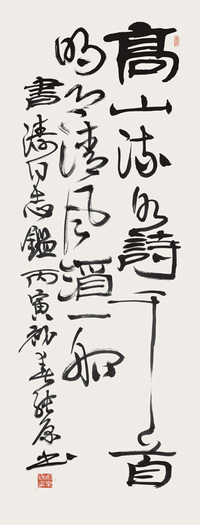 高山流水詩千首
明月清風酒一船
書濤同志鑑丙寅初春